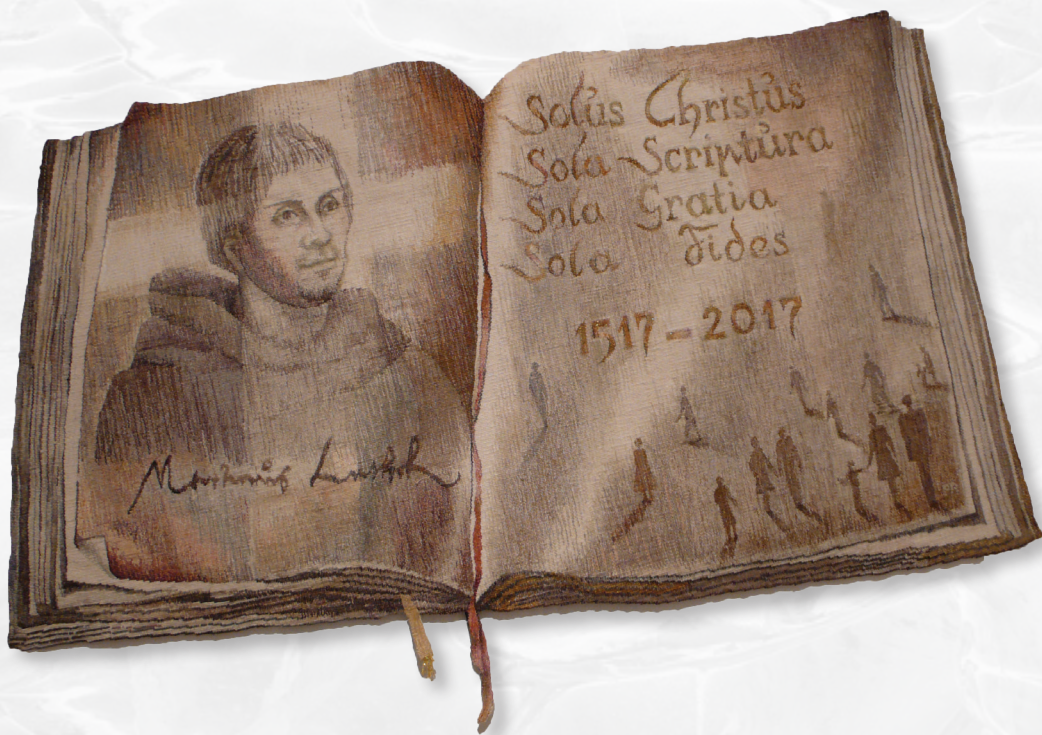 Martinus Luther
Solus Christus
Sola Scriptura
Sola Gratia
Sola Fides
1517 – 2017